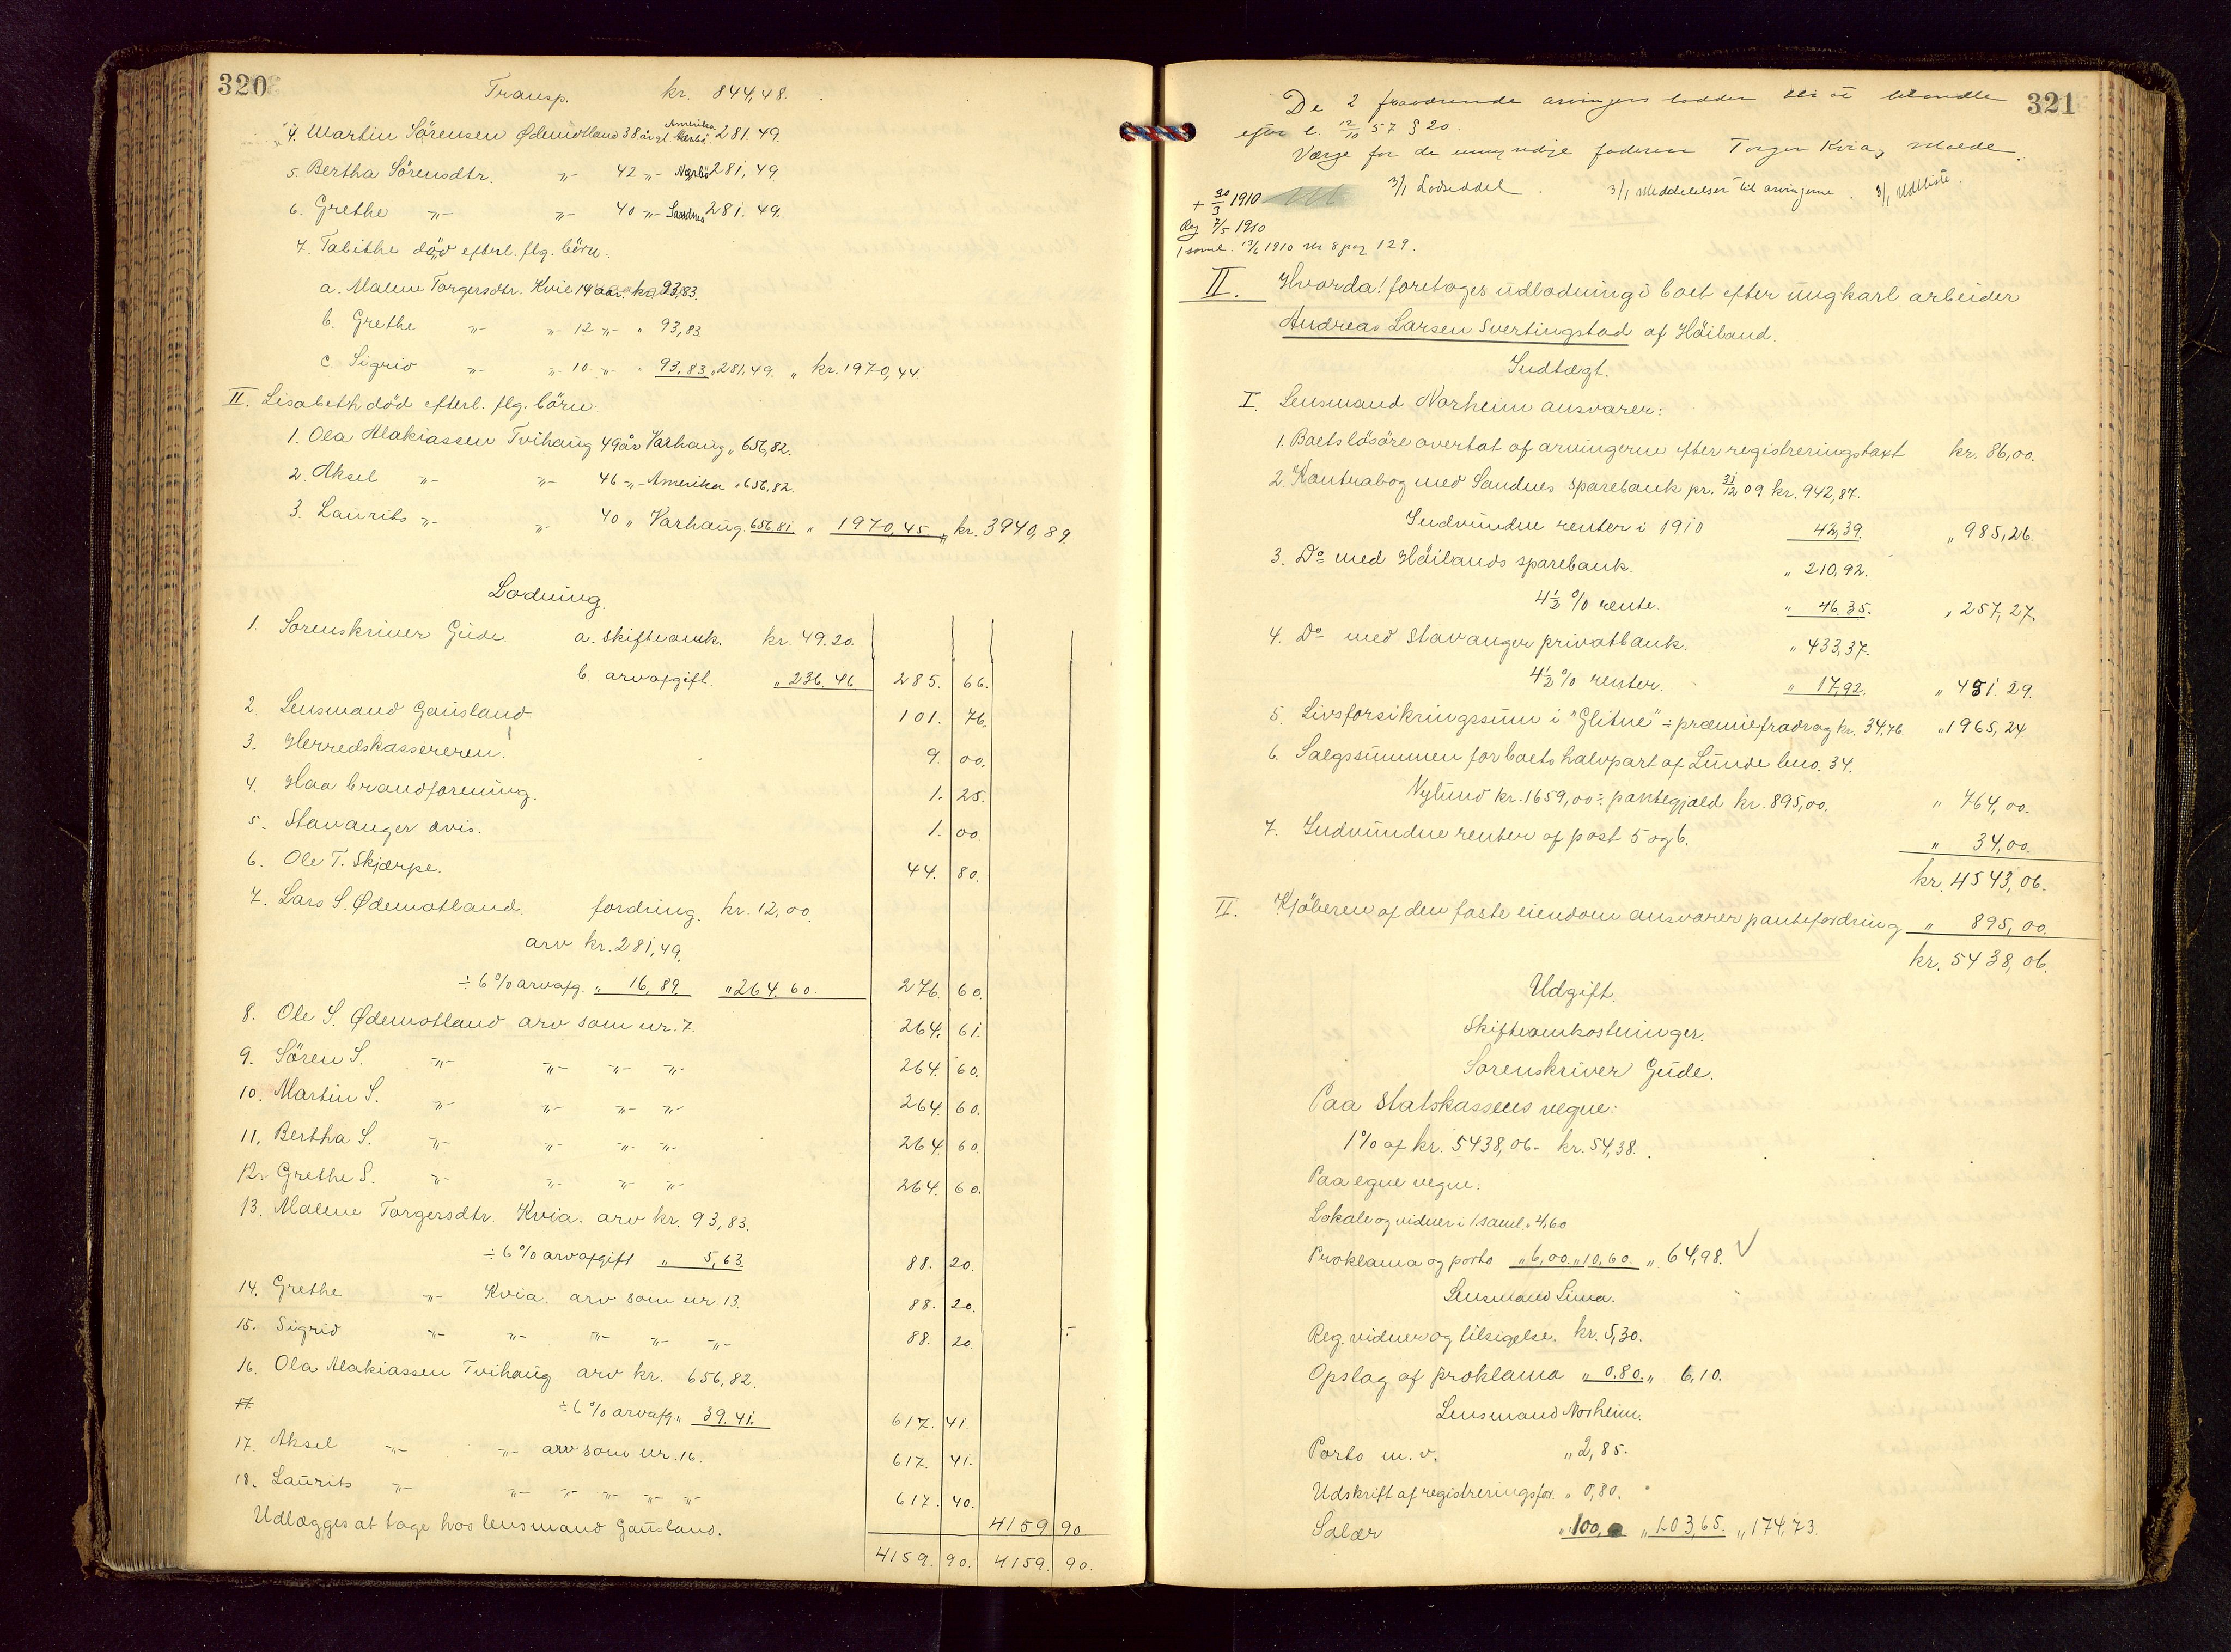 320
Transp. kr. 844,48.
4. Martin Sörensen Ødemotland 38 år gl. Amerika 281.49.
5. Bertha Sörensdtr. -"- 42 -"- Nærbö 281,49.
6. Grethe -"- -"- 40 -"- Sandnes 281.49.
7. Tabithe död efterl. flg. börn:
a. Malene Torgersdtr. Kvie 14 aar. kr. 93,83.
b. Grethe -"- -"- 12 -"- " 93,83
c. Sigrid -"- -"- 10 -"- " 93,83 " 281,49. " kr. 1970,44.
II. Lisabeth död efterl. flg. börn:
1. Ola Malakiassen Tvihaug 49 år Varhaug " 656,82.
2. Aksel -"- -"- 46 -"- Amerika " 656,82.
3. Laurits -"- -"- 40 " Varhaug. 656,81 " 1970,45 " kr. 3940,89.
Lodning.
1. Sorenskriver Gude. a. skifteomk. kr. 49.20.
b. arvafgift. " 236.46 285. 66.
2. Lensmand Gausland. 101. 76.
3. Herredskassereren. 9. 00.
4. Haa brandforening. 1. 25.
5. Stavanger avis. 1. 00.
6. Ole T. Skjærpe. 44. 80.
7. Lars S. Ødemotland. fordring. kr. 12,00.
arv kr. 281,49.
÷ 6% arvafg. " 16,89 " 264.60. 276. 60.
8. Ole S. Ødemotland arv som nr. 7. 264. 61.
9. Sören S. -"- -"- -"- -"- 264. 60.
10. Martin S. -"- -"- -"- -"- 264. 60.
11. Bertha S. -"- -"- -"- -"- 264. 60.
12. Grethe S. -"- -"- -"- -"- 264. 60.
13. Malene Torgersdtr. Kvia. arv kr. 93,83.
÷ 6% arvafgift " 5,63. 88. 20.
14. Grethe -"- Kvia. arv som nr. 13. 88. 20.
15. Sigrid -"- -"- -"- -"- -"- 88. 20
16. Ola Malakiassen Tvihaug. arv kr. 656,82.
÷ 6% arvafg. " 39.41. 617. 41.
17. Aksel -"- -"- arv som nr. 16. 617. 41.
18. Laurits -"- -"- -"- -"- -"- -"- 617. 40.
Udlægges at tage hos lensmand Gausland. 4159 90
4159. 90. 4159. 90.
321
De 2 fraværende arvingers lodder blir at behandle
efter l. 12/10 57 § 20.
Værge for de umyndige faderen Torger Kvia,
3/1 Lodseddel. 3/1 Meddelelser til arvingerne. 3/1 Udlliste.
+ 30/3 1910
Beg 7/5 1910
1 saml. 13/6 1910 nr 8 pag 129.
II. Hvorda! foretoges udlodning i boet efter ungkarl arbeider
Andreas Larsen Svertingstad af Höiland.
Indtægt.
I. Lensmand Norheim ansvarer:
1. Boets lösöre overtat af arvingerne efter registreringstaxt kr. 86,00.
2. Kontrabog med Sandnes sparebank pr. 31/12 09 kr. 942,87.
Indvundne renter i 1910 42,39. " 985,26.
3. Do med Höilands sparebank. " 210,92.
4½ % rente. " 46.35. " 257,27.
4. Do med Stavanger privatbank. " 433,37.
4½ % renter. " 17,92. " 451.29.
5. Livsforsikringssum i "Glitne" ÷ præmiefradrag kr. 34,76. " 1965,24
6. Salgssummen for boets halvpart af Lunde bno. 34.
Nylund kr. 1659,00 ÷ pantegjæld kr. 895,00. " 764,00.
7. Indvundne renter af post 5 og 6. " 34,00.
kr. 4543,06.
II. Kjöberen af den faste eiendom ansvarer pantefordring " 895,00.
kr. 5438,06.
Udgift.
Skifteomkostninger.
Sorenskriver Gude.
Paa Statskassens vegne:
1% af kr. 5438,06 - kr. 54,38.
Paa egne vegne:
Lokale og vidner i 1 saml. " 4,60
Proklama og porto " 6,00. " 10,60. " 64,98. √
Lensmand Lima.
Reg. vidner og tilsigelse. kr. 5,30.
Opslag af proklama " 0,80. " 6,10.
Lensmand Norheim.
Porto m. v. " 2,85.
Udskrift af registreringsfor. " 0,80.
Salær " 100, " 103,65. " 174,73.